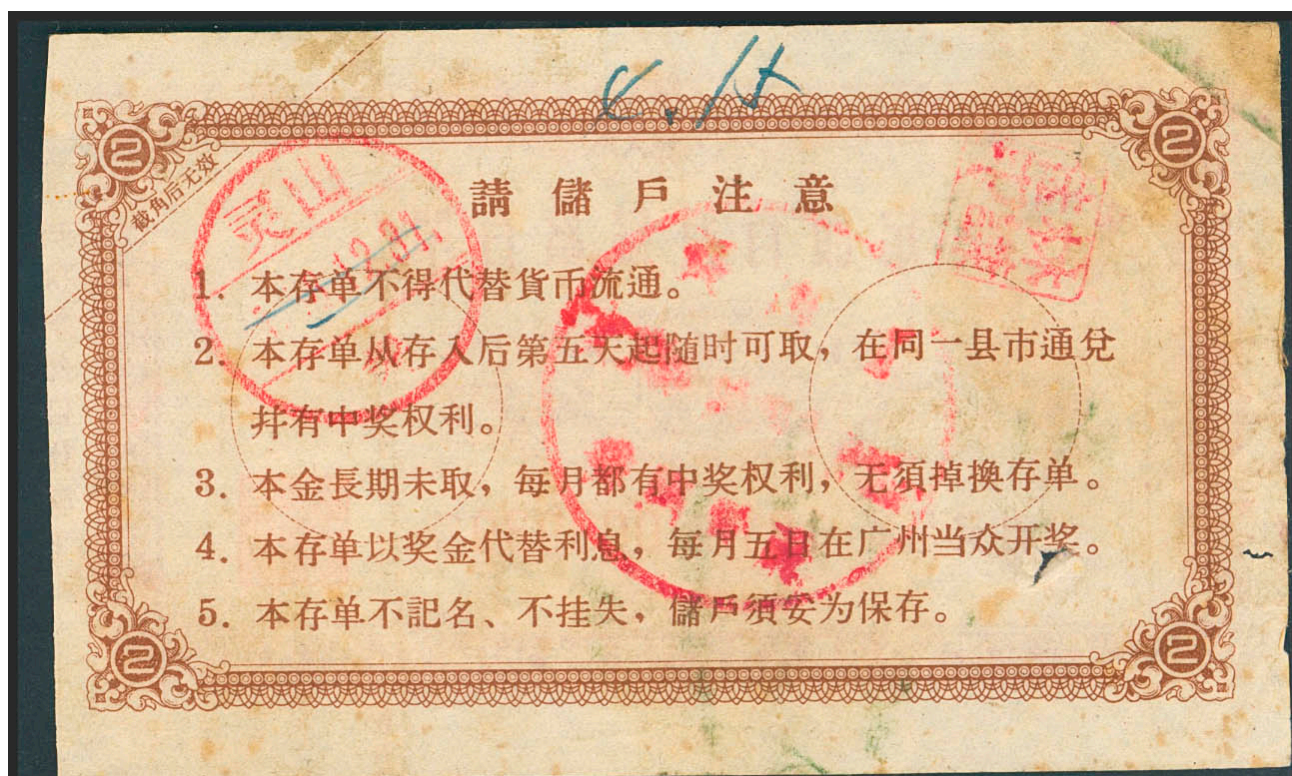 8.15
2
2
截角后无效
灵山
請儲戶注意
1. 本存单不得代替貨币流通。
2. 本存单从存入后第五天起随时可取，在同一县市通兑
幷有中奖权利。
3. 本金長期未取，每月都有中奖权利，无須掉換存单。
4. 本存单以奖金代替利息，每月五日在广州当众开奖。
5. 本存单不記名、不挂失，儲戶須妥为保存。
2
2